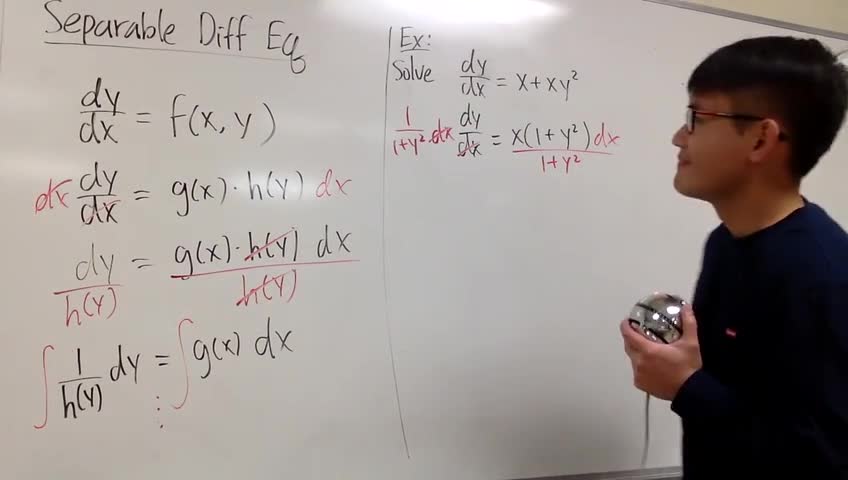 Separable Diff Eq
dy/dx = f(x, y)
dx dy/dx = g(x) · h(y) dx
dy/h(y) = g(x) · h(y) dx/h(y)
∫ 1/h(y) dy = ∫ g(x) dx
⋮
Ex:
Solve dy/dx = x + xy²
1/1+y² · dx dy/dx = x(1 + y²) dx/1+y²